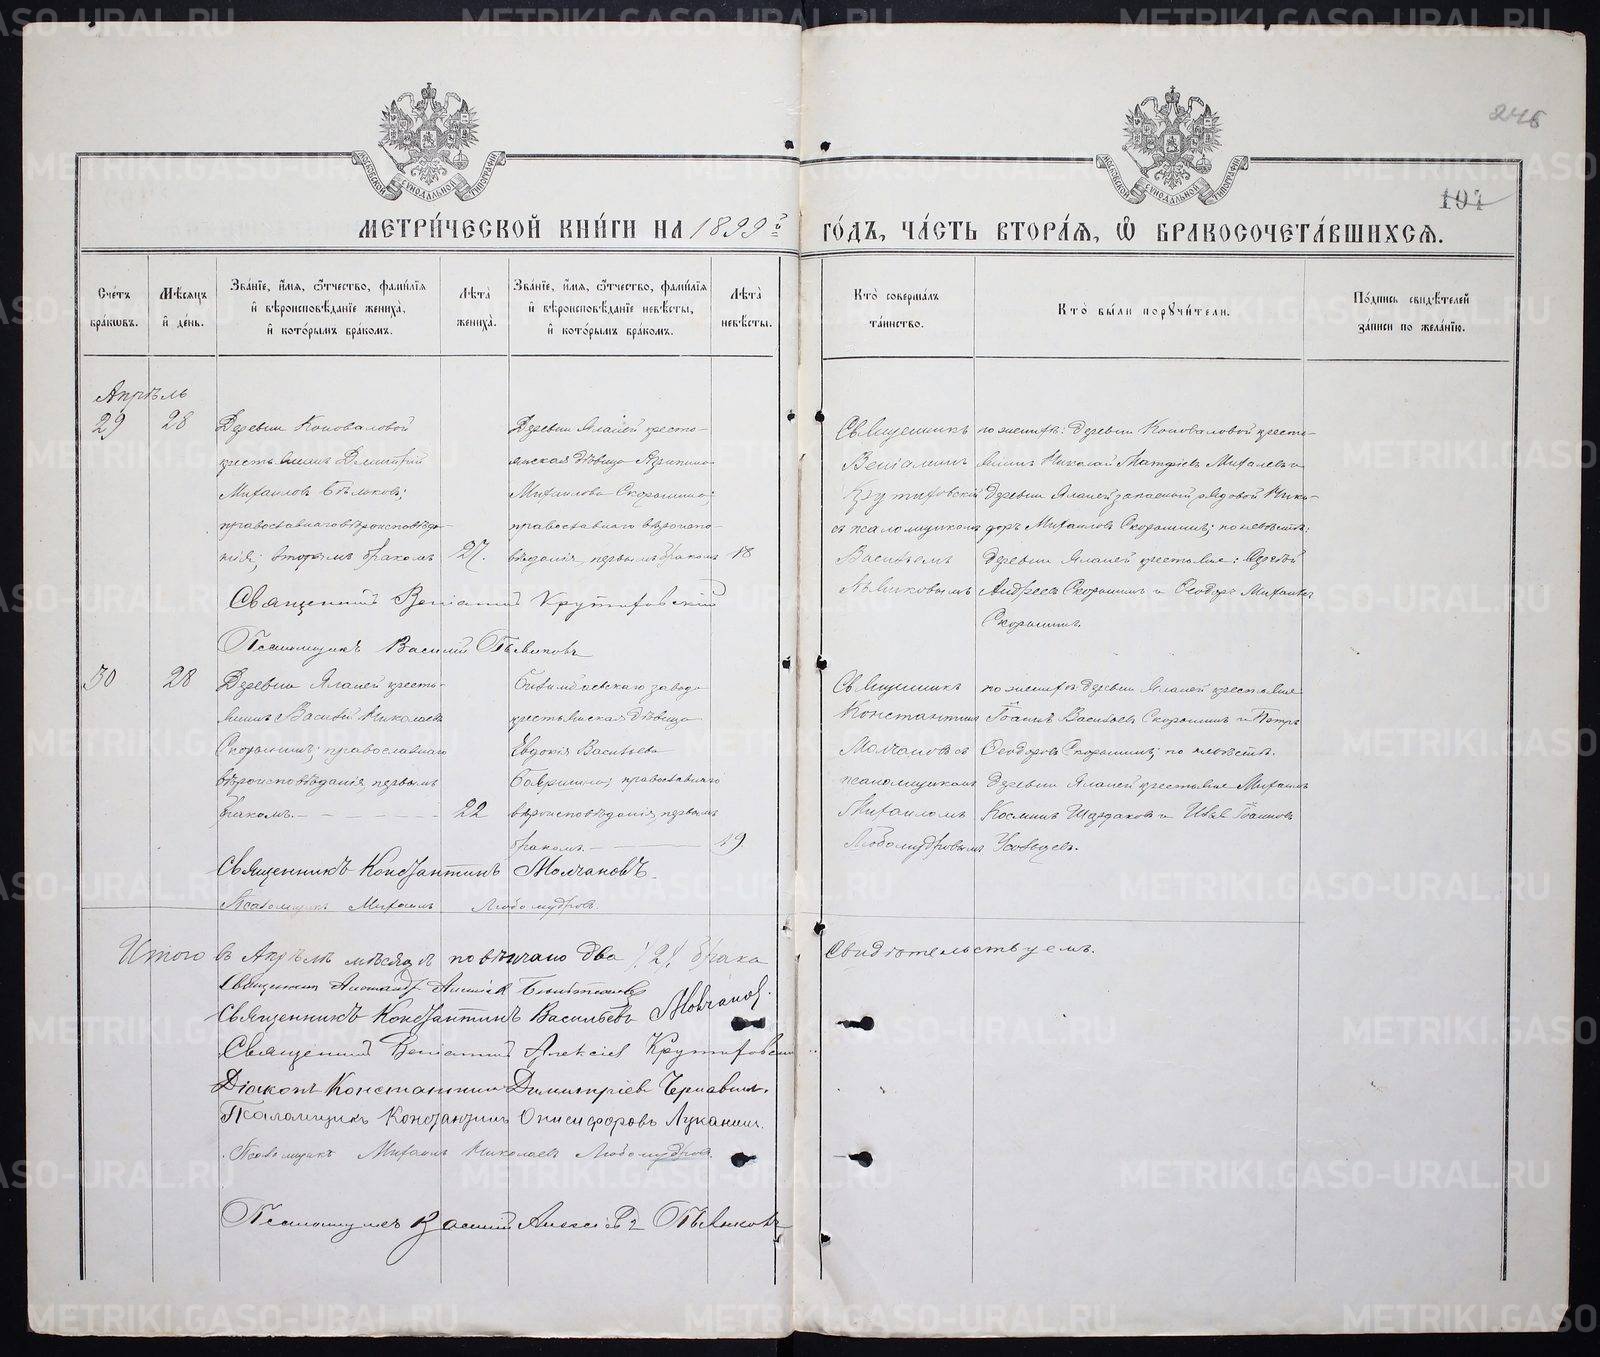 246
101
МЕТРИ́ЧЕСКОЙ КНИ́ГИ НА 1899й ГО́ДЪ, ЧА́СТЬ ВТОРА́Я, Ѡ БРАКОСОЧЕТА́ВШИХСЯ.
Сче́тъ бра́кѡвъ.
Мѣ́сяцъ и́ де́нь.
Зва́нїе, и́мя, ѻ́тчество, фами́лїя и́ вѣроисповѣ́данїе жениха̀, и́ кото́рымъ бра́комъ.
Лѣ́та̀ жениха̀.
Зва́нїе, и́мя, ѻ́тчество, фами́лїя и́ вѣроисповѣ́данїе невѣ́сты, и́ кото́рымъ бра́комъ.
Лѣ́та̀ невѣ́сты.
Кто̀ соверша́лъ та́инство.
Кто̀ бы́ли порꙋчи́тели.
По́дпись свидѣ́телей за́писи по жела́нїю.
Апрѣль
29
28
Деревни Коноваловой
крестьянинъ Димитрій
Михаиловъ Бѣляковъ;
православнаго вѣроисповѣда-
нія; вторымъ бракомъ
27.
Деревни Яланей кресть-
янская дѣвица Агрипина
Михаилова Скорынина;
православнаго вѣроиспо-
вѣданія, первымъ бракомъ
18
Священникъ
Веніаминъ
Крутиховскій
съ псаломщикомъ
Василіемъ
по женихѣ: деревни Коноваловой кресть-
янинъ Николай Матфіевъ Михалевъ и
деревни Яланей запасный рядовой Ники-
форъ Михаиловъ Скорынинъ; по невѣстѣ:
деревни Яланей крестьяне: Сергѣй
Андреевъ Скорынинъ и Ѳеодоръ Михаиловъ
Скорынинъ.
Священникъ Веніаминъ Крутиховскій
Псаломщикъ Василій
30
28
Деревни Яланей кресть-
янинъ Василій Николаевъ
Скорынинъ; православнаго
вѣроисповѣданія, первымъ
бракомъ. — — — — —
22
Билимбаевскаго завода
крестьянская дѣвица
Евдокія Васильева
православнаго
вѣроисповѣданія, первымъ
бракомъ. —
19
Священникъ
Константинъ
Молчановъ съ
псаломщикомъ
Михаиломъ
Любомудровымъ
по женихѣ деревни Яланей крестьяне
Іоаннъ Васильевъ Скорынинъ и Петръ
Ѳеодоровъ Скорынинъ; по невѣстѣ:
деревни Яланей крестьяне Михаилъ
Косминъ и Іоанновъ
Священникъ Константинъ Молчановъ.
Псаломщикъ Михаилъ Любомудровъ.
Итого въ Апрѣлѣ мѣсяцѣ повѣнчано два /2/ брака
Свидѣтельствуемъ.
Священникъ Александръ
Священникъ Константинъ Васильевъ Молчановъ.
Священникъ Веніаминъ Алексіев Крутиховскій
Діаконъ Константинъ Димитріевъ Чернавинъ.
Псаломщикъ Константинъ Онисифоровъ Луканинъ.
Псаломщикъ Михаилъ Николаевъ Любомудровъ.
Псаломщикъ Василій Алексіевъ